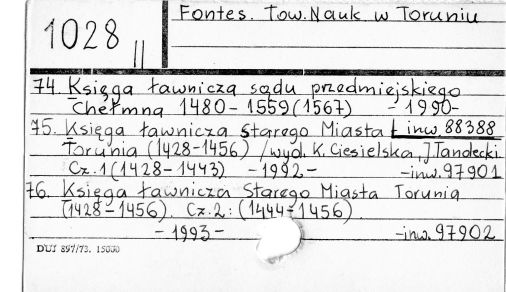 1028 II
Fontes. Tow. Nauk w Toruniu
74. Księga ławnicza sądu przedmiejskiego
Chełmna 1480-1559 (1567) -1990-
inw 88388
75. Księga ławnicza Starego Miasta
Torunia (1428-1456) /wyd. K. Ciesielska, J Tandecki
Cz. 1 (1428-1443) -1992- -inw. 97901
76. Księga ławnicza Starego Miasta Torunia
(1428-1456). Cz. 2: (1444-1456)
-1993- -inw. 97902
DUJ 897/73. 15000